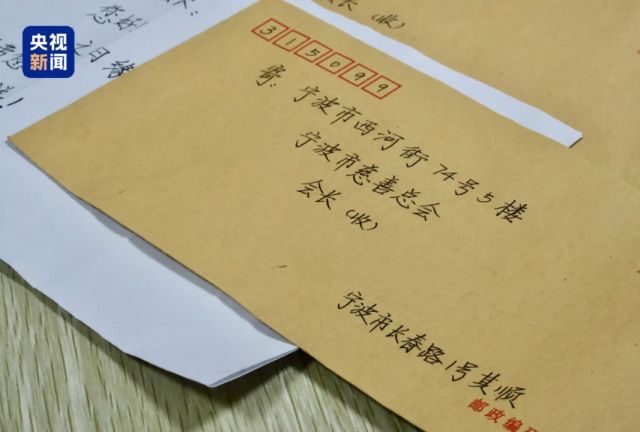 央视
新闻
您好
长（收）
315099
寄：宁波市西河街74号5楼
宁波市慈善总会
会长（收）
宁波市长春路1号其顺
邮政编